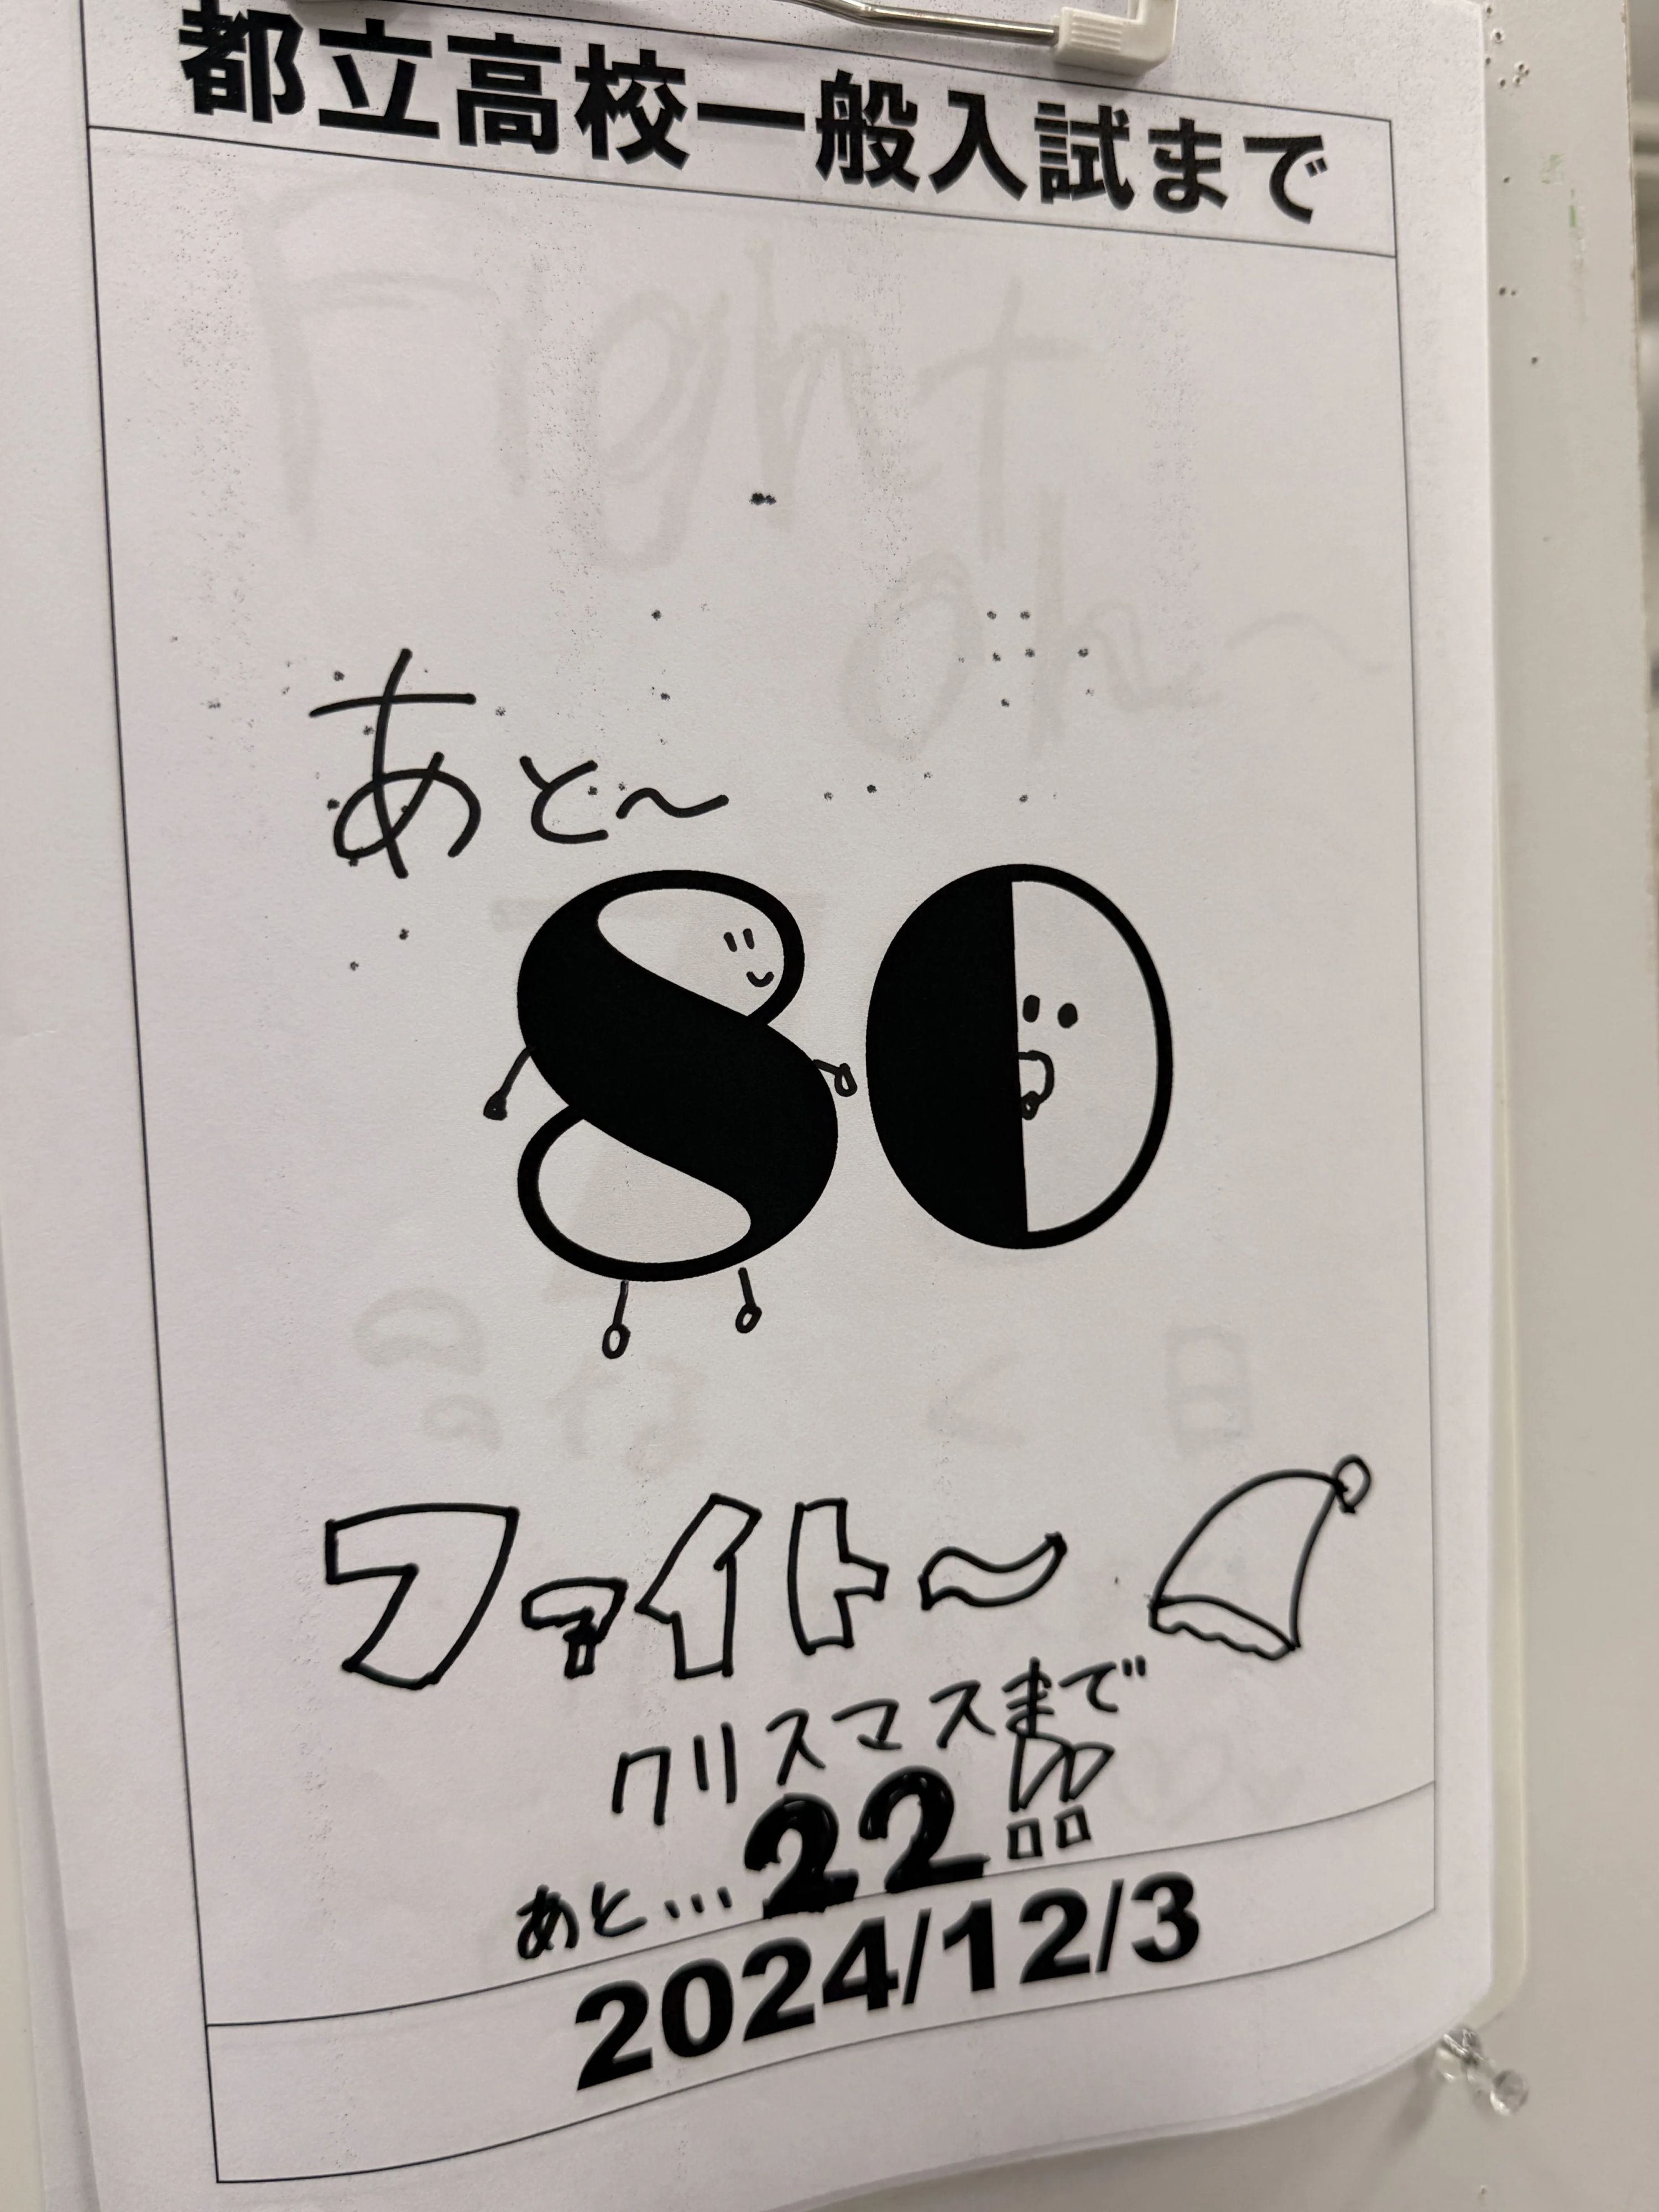 都立高校一般入試まで
あと〜
80
ファイト〜
クリスマスまで
あと...22!!
2024/12/3
Fight
oh〜